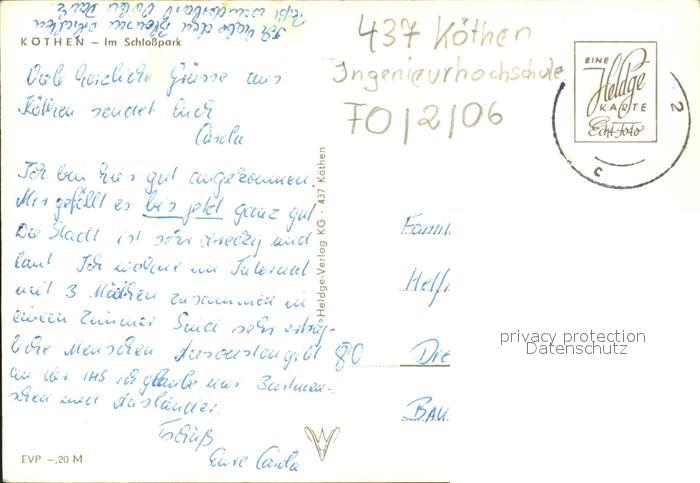 Ich habe den Blumen
Teppi wunderbar
KÖTHEN – Im Schloßpark
Viele herzliche Grüsse aus
Köthen sendet Euch
Carola
Ich bin hier gut angekommen.
Mir gefällt es bis jetzt ganz gut.
Die Stadt ist sehr dreckig und
laut. Ich wohne im Internat
mit 3 Mädchen zusammen in
einem Zimmer. Sind sehr erträg-
liche Menschen. Ansonsten gibt
an der IHS ich glaube nur Bartmen-
schen und Ausländer.
Tschüß
Eure Carola
EVP –,20 M
Heldge-Verlag KG · 437 Köthen
437 Köthen
Ingenieurhochschule
FO/2/06
EINE
Heldge
KARTE
Echt Foto
2
c
Famil
Helf
80 Dre
BAU
privacy protection
Datenschutz